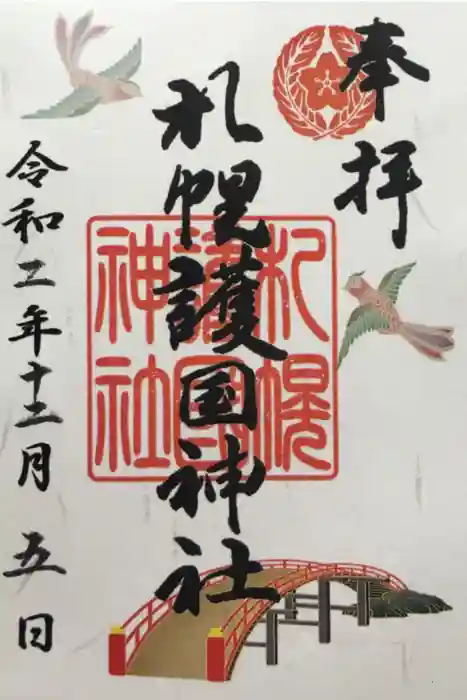 奉拝
札幌護国神社
札幌
護国
神社
令和二年十二月五日